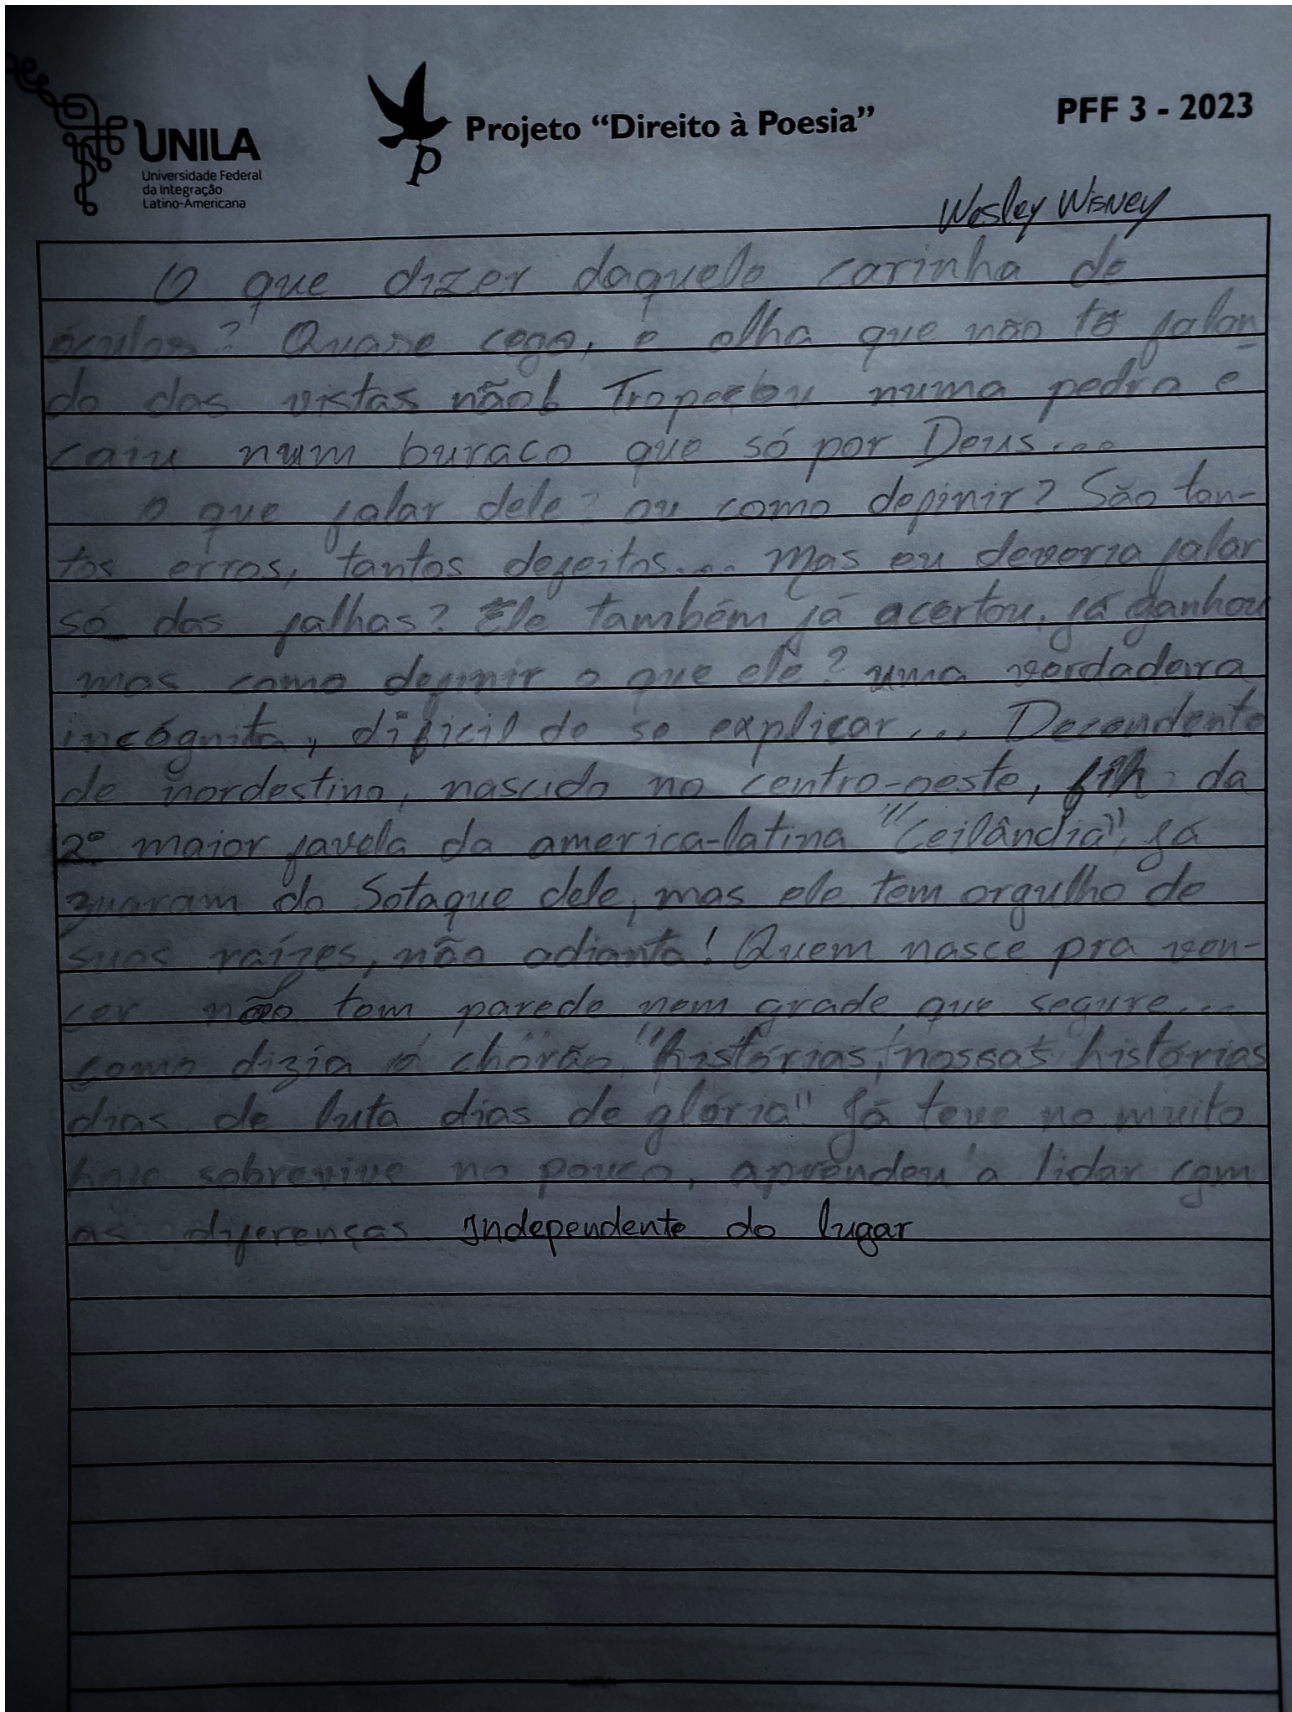 UNILA
Universidade Federal
da Integração
Latino-Americana
p
Projeto “Direito à Poesia”
PFF 3 - 2023
Wesley Wisney
O que dizer daquele carinha de
óculos? Quase cego, e olha que não tô falan-
do das vistas não! Tropeçou numa pedra e
caiu num buraco que só por Deus...
O que falar dele? ou como definir? São tan-
tos erros, tantos defeitos... Mas eu deveria falar
só das falhas? Ele também já acertou, já ganhou
mas como definir o que ele? uma verdadeira
incógnita, dificil de se explicar... Decendente
de nordestino, nascido no centro-oeste, filho da
2º maior favela da america-latina "Ceilândia", já
zuaram do Sotaque dele, mas ele tem orgulho de
suas raízes, não adianta! Quem nasce pra ven-
cer não tem parede nem grade que segure...
como dizia o chorão "histórias, nossas histórias
dias de luta dias de glória" já teve no muito
hoje sobrevive no pouco, aprendeu a lidar com
as diferenças Independente do lugar